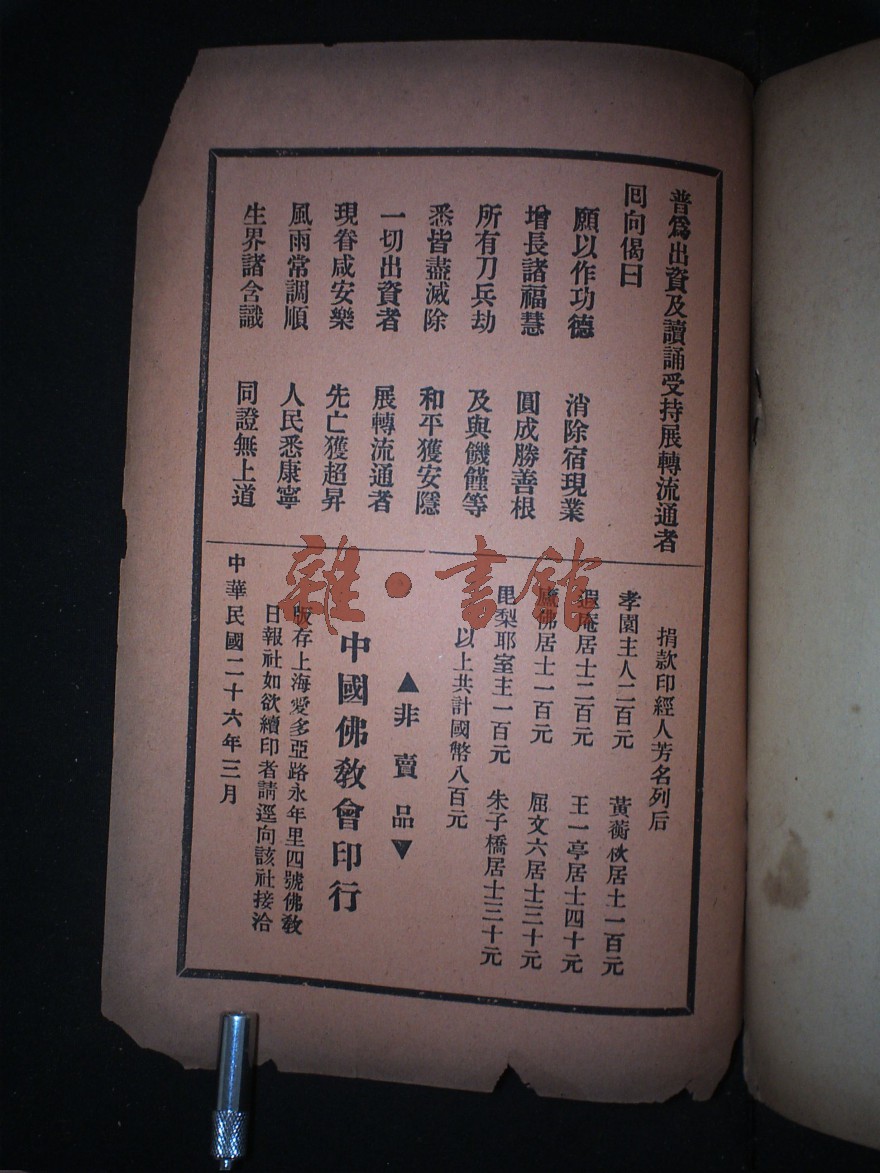 普爲出資及讀誦受持展轉流通者
囘向偈曰
願以作功德 消除宿現業
增長諸福慧 圓成勝善根
所有刀兵劫 及與饑饉等
悉皆盡滅除 和平獲安隱
一切出資者 展轉流通者
現眷咸安樂 先亡獲超昇
風雨常調順 人民悉康寧
生界諸含識 同證無上道
捐款印經人芳名列后
孝園主人二百元 黃蘅秋居士一百元
遐庵居士二百元 王一亭居士四十元
廬佛居士一百元 屈文六居士三十元
毘梨耶室主一百元 朱子橋居士三十元
以上共計國幣八百元
▲非賣品▼
中國佛敎會印行
版存上海愛多亞路永年里四號佛敎
日報社如欲續印者請逕向該社接洽
中華民國二十六年三月
雜·書館